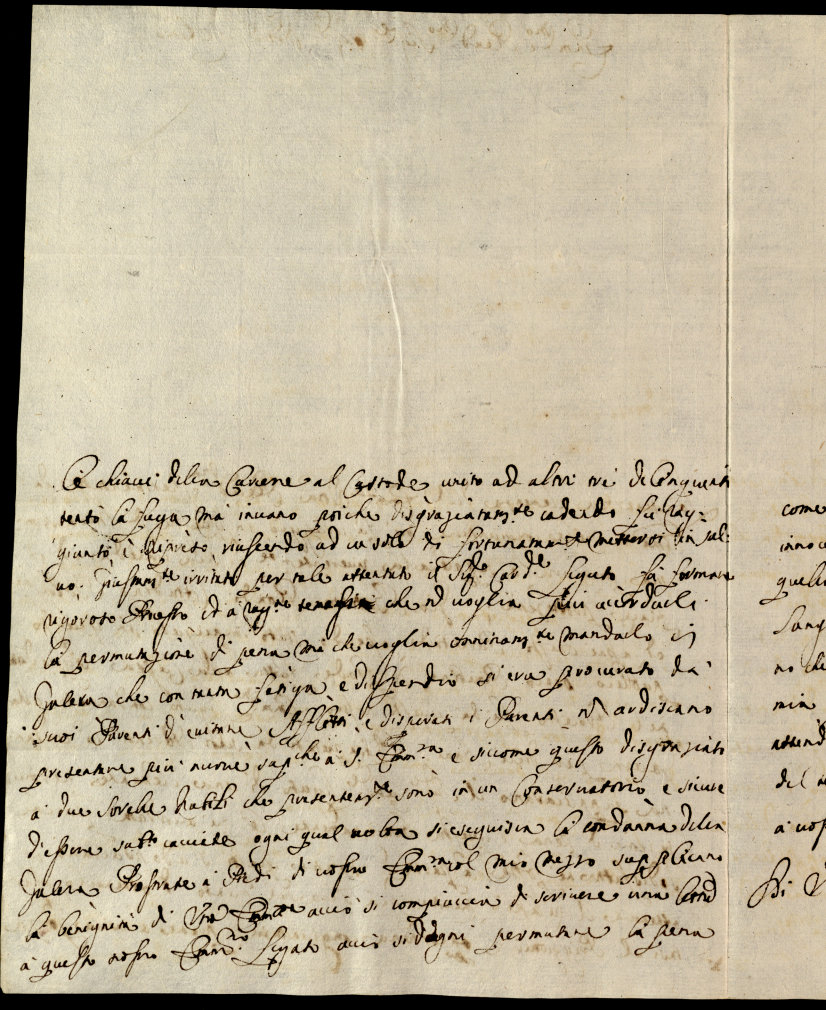 Le chiavi della Carcere al Custode unito ad altri tre delinquenti
tentò la fuga mà invano poiche disgraziatam.te cadendo fù rag=
giunto è ripreso, riuscendo ad un solo di fortunatam.te mettersi in sal=
vo; irritato per tale attentato il Sig.r Card.le Legato fà formare
rigoroso Processo ed à che nõ voglia più accordarli
la permutazione di pena mà che voglia onninam.te mandarlo in
Galera che con tanta fatiga e dispendio si era procurato da'
suoi Parenti d'evitare Afflitti, e disperati i Parenti nõ ardiscano
presentare più nuove sup.che à S. Em.za e siccome questo disgraziato
à due sorelle Nubili che presentem.te sono in un Conservatorio e sicure
d'essere cacciate ogni qual volta si eseguisca la condanna della
Galera Prostrate à Piedi di vostra Em.za col mio mezzo supplicano
la benignità di Vra acciò si compiaccia di scrivere una
à questo nostro Em.mo Legato acciò si degni permutare la pena
come
quell
Sang
no che
mia
attend
del
à vos
Di V